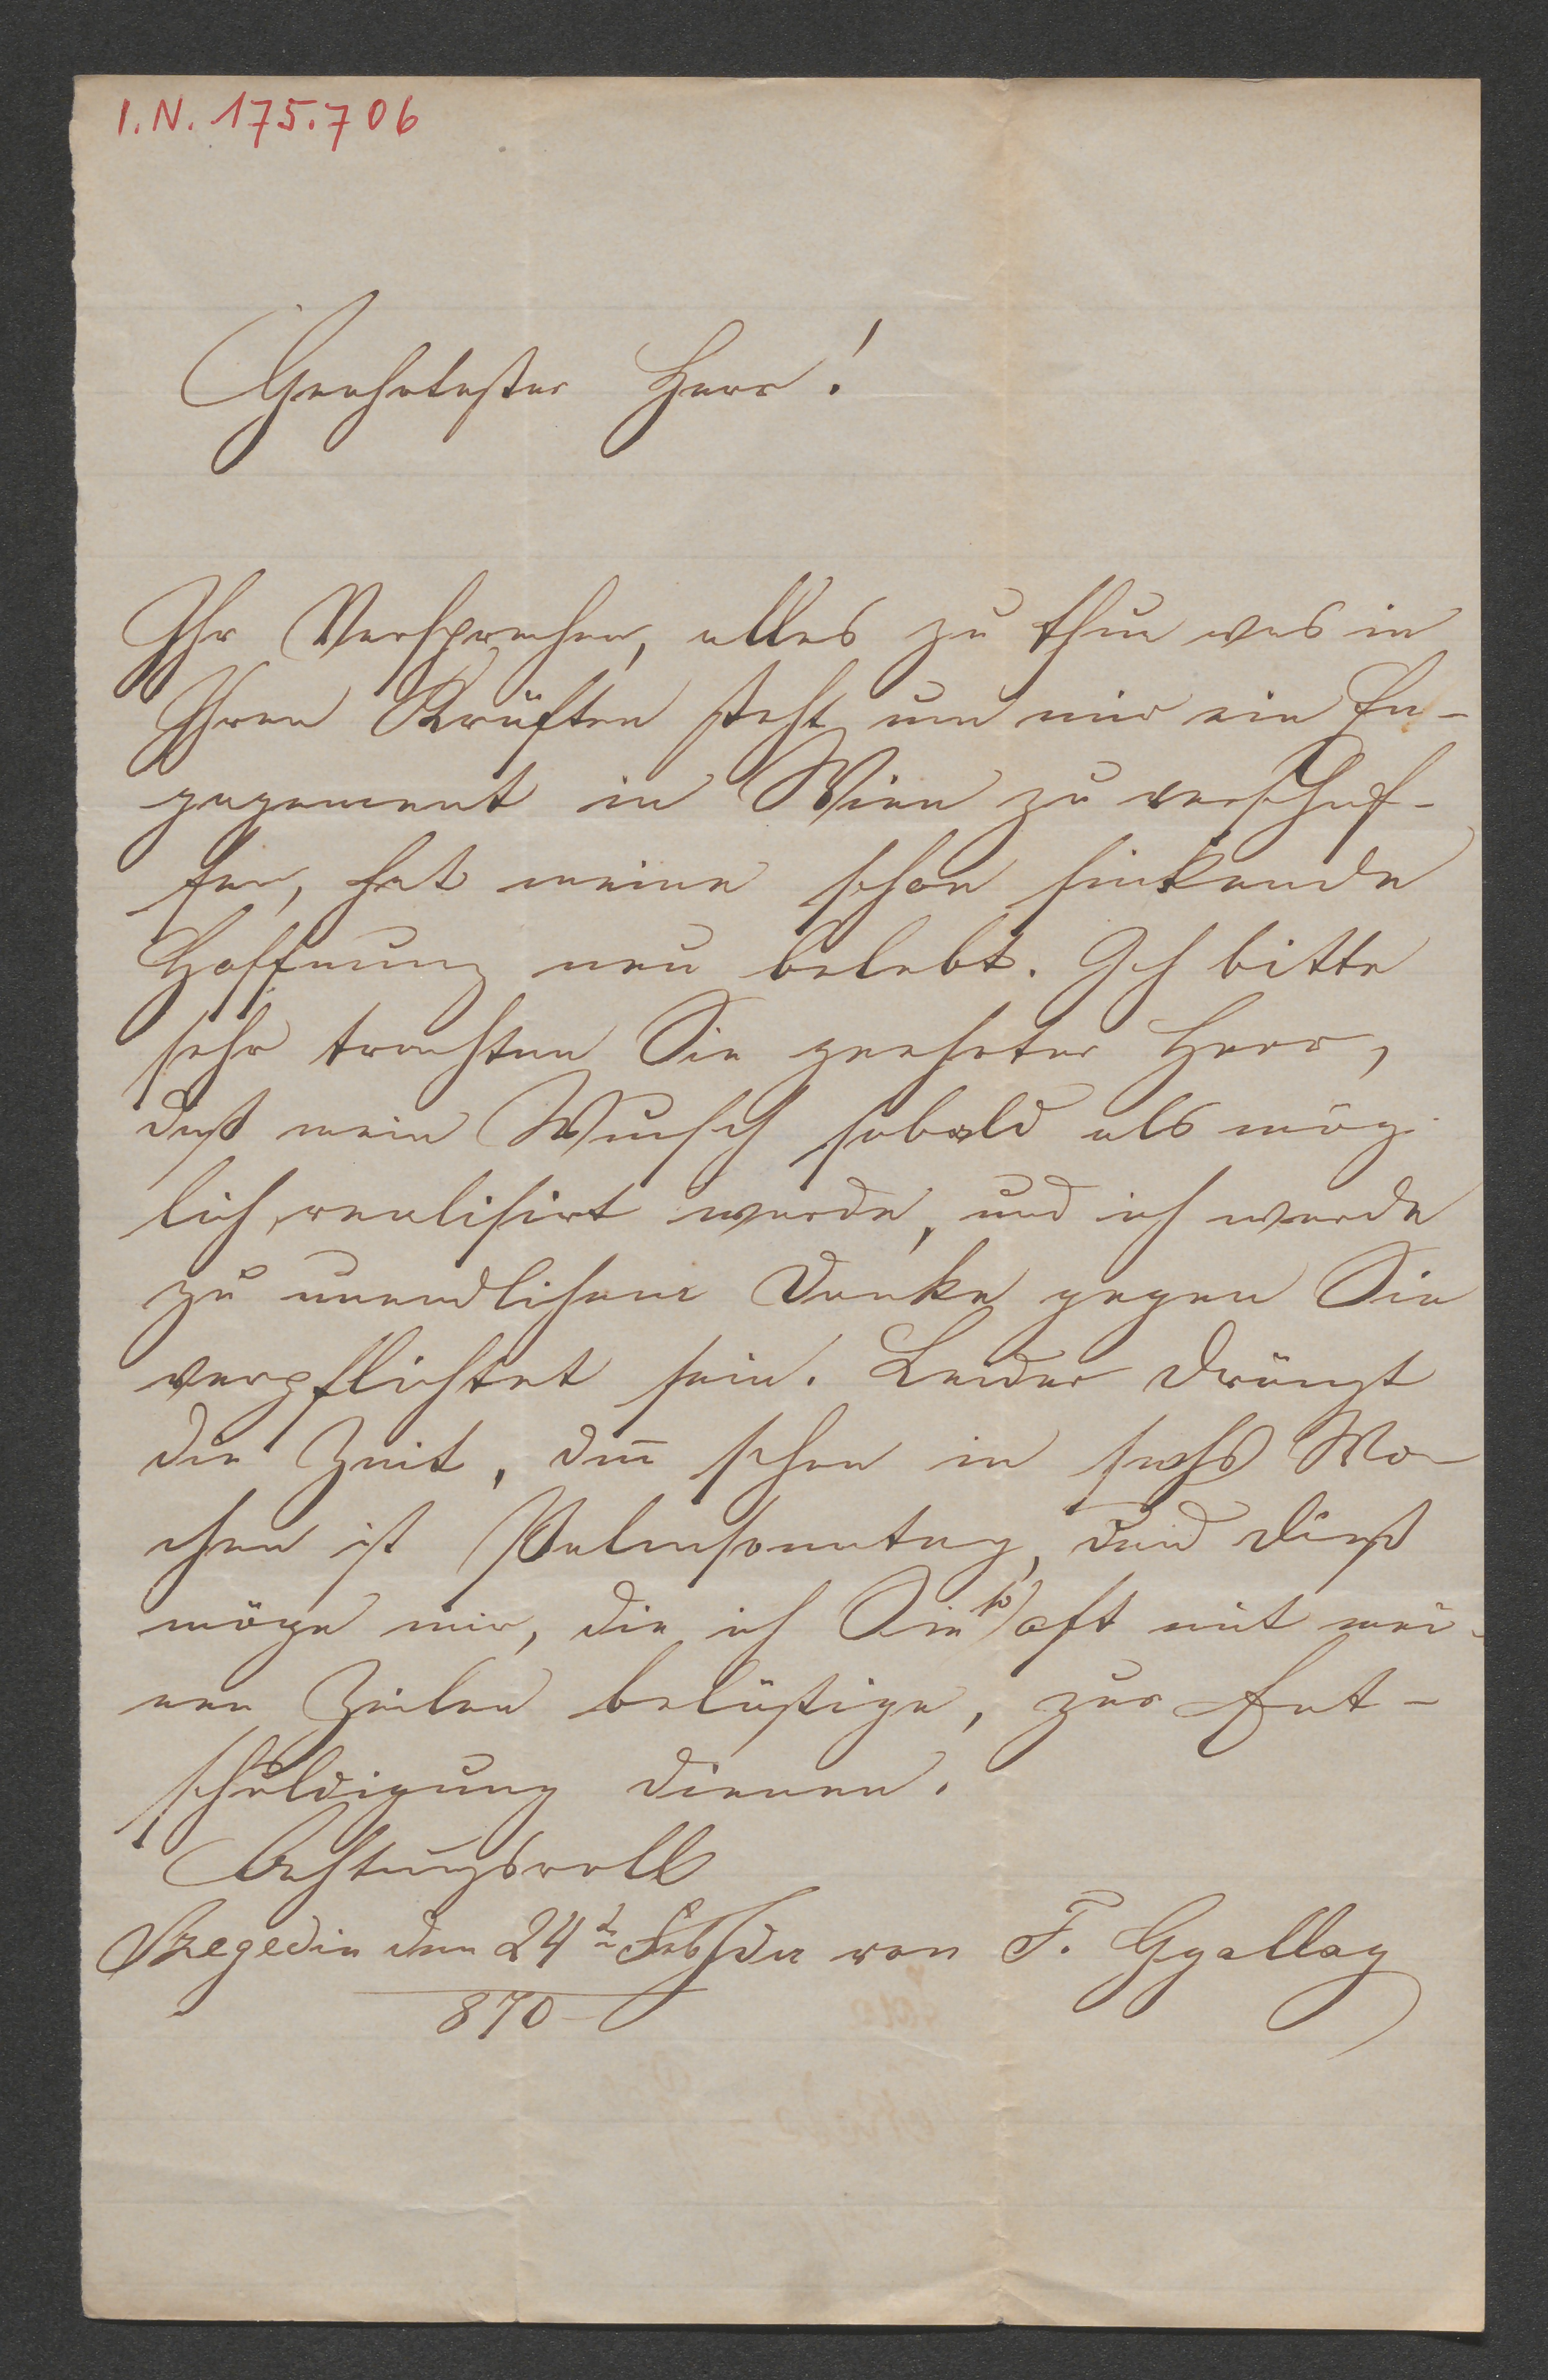 I.N. 175.706
Geehrtester Herr!
Ihr Versprechen, alles zu thun was in
Ihren Kräften steht um mir ein En-
gagement in Wien zu verschaf-
fen, hat meine schon sinkende
Hoffnung neu belebt. Ich bitte
sehr trachten Sie geehrter Herr,
daß mein Wunsch sobald als mög-
lich realisirt werde, und ich werde
zu unendlichem Danke gegen Sie
verpflichtet sein. Leider drängt
die Zeit, den̄ schon in sechs Wo-
chen ist Palmsonntag, und dieß
möge mir, die ich Sie so oft mit mei-
nen Zeilen belästige, zur Ent-
schuldigung dienen.
Achtungsvoll
Szegedin den 24t Feb. von F. Gyallay
870